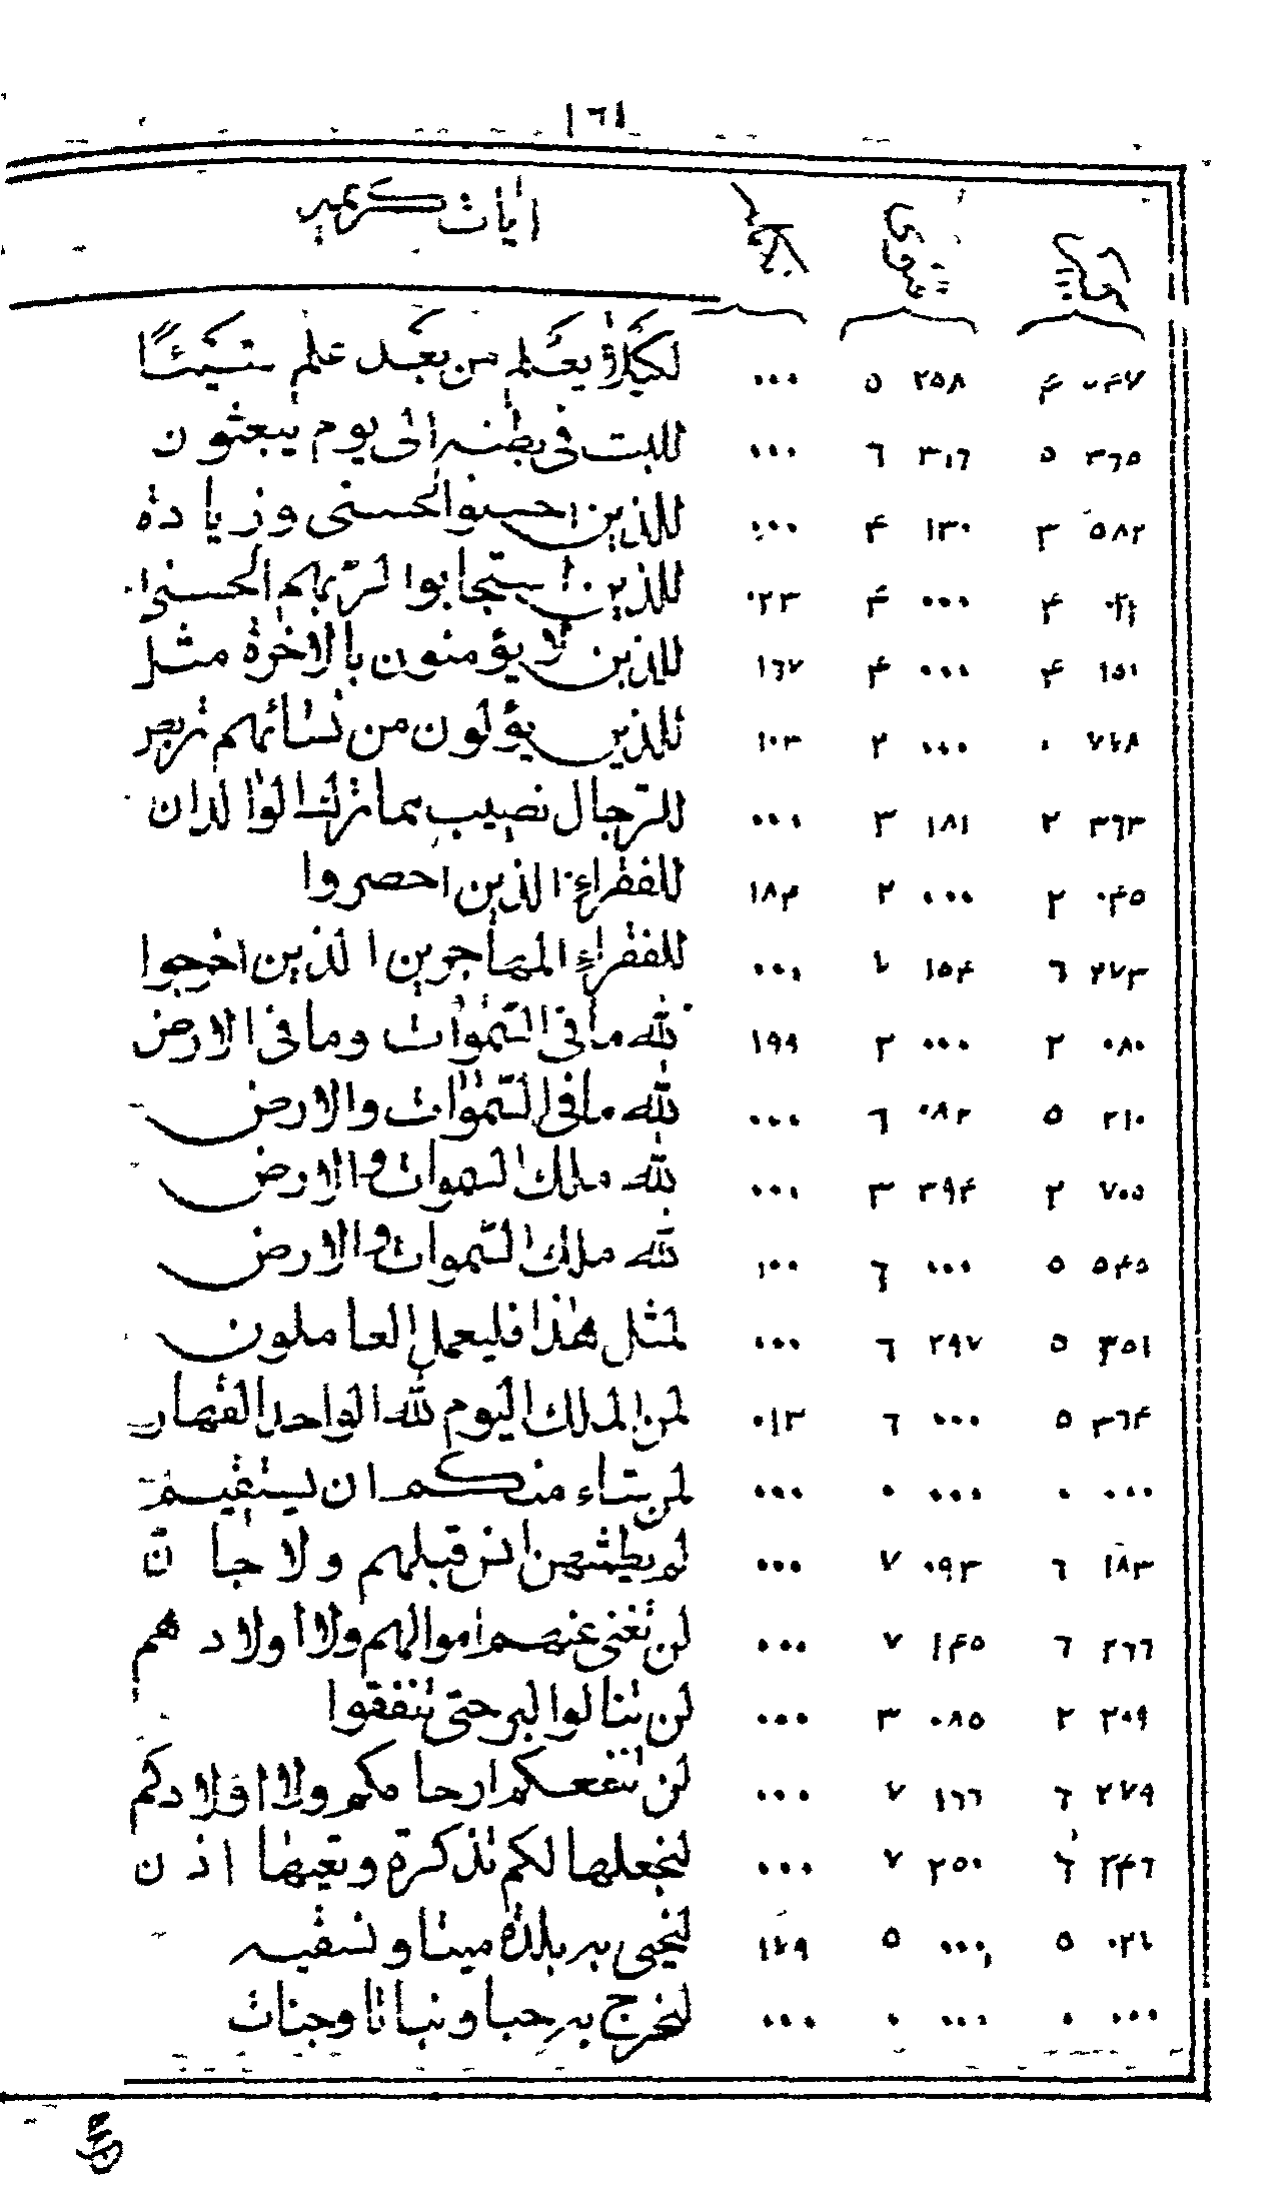 ١٦١
اٰيات كريمه
٠٤٧ ۴ ٢٥٨ ٥ ٠٠٠ لكيلا يعلم من بعد علم شيئًا
٣٦٥ ٥ ٣١٦ ٦ ٠٠٠ للبث فى بطنه الى يوم يبعثون
٥٨٢ ٣ ١٣٠ ۴ ٠٠٠ للذين احسنوا الحسنى وزيادة
۴ ٠٠٠ ۴ ٠٢٣ للذين استجابوا لربهم الحسنى
١٥١ ۴ ٠٠٠ ۴ ١٦٧ للذين لا يؤمنون بالاخرة مثل
٠ ٠٠٠ ٢ ١٠٣ للذين يؤلون من نسائهم تربص
٣٦٣ ٢ ١٨١ ٣ ٠٠٠ للرجال نصيب مما ترك الوالدان
٠۴٥ ٢ ٠٠٠ ٢ ١٨۴ للفقراء الذين احصروا
٢٧٣ ٦ ١٥۴ ٧ ٠٠٠ للفقراء المهاجرين الذين اخرجوا
٠٨٠ ٢ ٠٠٠ ٢ ١٩٩ لله مافى السموات ومافى الارض
٢١٠ ٥ ٠٨٢ ٦ ٠٠٠ لله مافى السموات والارض
٧٠٥ ٢ ٣٩۴ ٣ ٠٠٠ لله ملك السموات والارض
٥۴٥ ٥ ٠٠٠ ٦ ١٠٠ لله ملك السموات والارض
٣٥١ ٥ ٢٩٧ ٦ ٠٠٠ لمثل هذا فليعمل العاملون
٣٦۴ ٥ ٠٠٠ ٦ ٠١٣ لمن الملك اليوم لله الواحد القهار
٠٠٠ ٠ ٠٠٠ ٠ ٠٠٠ لمن شاء منكم ان يستقيم
١٨٣ ٦ ٠٩٣ ٧ ٠٠٠ لم يطمثهن انس قبلهم ولا جان
٢٦٦ ٦ ١۴٥ ٧ ٠٠٠ لن تغنى عنهم اموالهم ولا اولادهم
٢٠٩ ٢ ٠٨٥ ٣ ٠٠٠ لن تنالوا البر حتى تنفقوا
٢٧٩ ٦ ١٦٦ ٧ ٠٠٠ لن تنفعكم ارحامكم ولا اولادكم
٢۴٦ ٦ ٢٥٠ ٧ ٠٠٠ لنجعلها لكم تذكرة وتعيها اذن
٥ ٠٠٠ ٥ لنحيى به بلدة ميتا ونسقيه
٠٠٠ ٠ ٠٠٠ ٠ ٠٠٠ لنخرج به حبا ونباتا وجنات